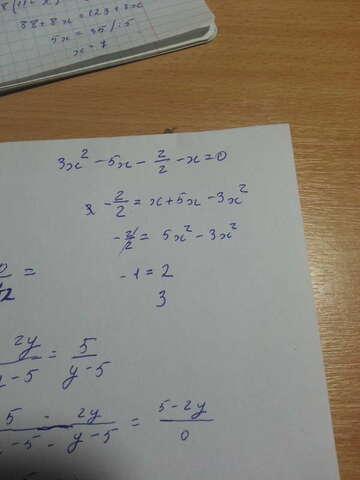 38 + 8x = 123 + 3x
5x = 35 / : 5
x = 7
3x² - 5x - 2/2 - x = 0
- 2/2 = x + 5x - 3x²
- 2/2 = 5x² - 3x²
- 1 = 2
3
2y / y - 5 = 5 / y - 5
5 - 2y / y - 5 - y - 5 = 5 - 2y / 0